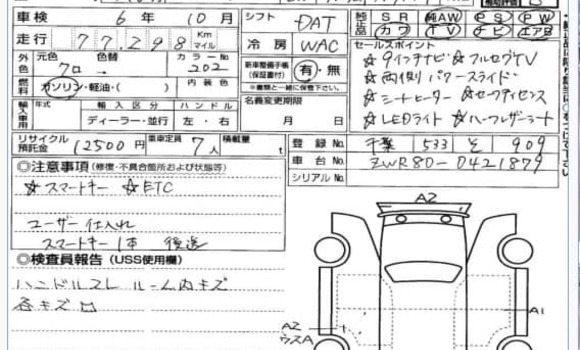 車検 6年10月 シフト DAT 純正品 SR 純AW PS PW
走行 77,298 Km マイル 冷房 WAC カワ TV ナビ エアB
外色 元色 クロ 色替 カラーNo 202 新車整備手帳(保証書付) 有・無
※書類と一緒に保管して下さい。
燃料 ガソリン・軽油・( ) 内装色
セールスポイント
☆9インチナビ☆フルセグTV
☆両側パワースライド
☆シートヒーター☆セーフティセンス
☆LEDライト☆ハーフレザーシート
輸入車用 年式 輸入区分 ディーラー・並行 ハンドル 左・右
名義変更期限 月 日
リサイクル預託金 12500円 乗車定員 7人 積載量
登録No 千葉 533 そ 909
車台No ZWR80-0421879
シリアルNo
◎注意事項(修復・不具合箇所および状態等)
☆スマートキー ☆ETC
ユーザー仕入れ
スマートキー1本 後送
◎検査員報告(USS使用欄)
ハンドルスレ ルーム内キズ
各キズ凹
A2
A1
A2
ウスA